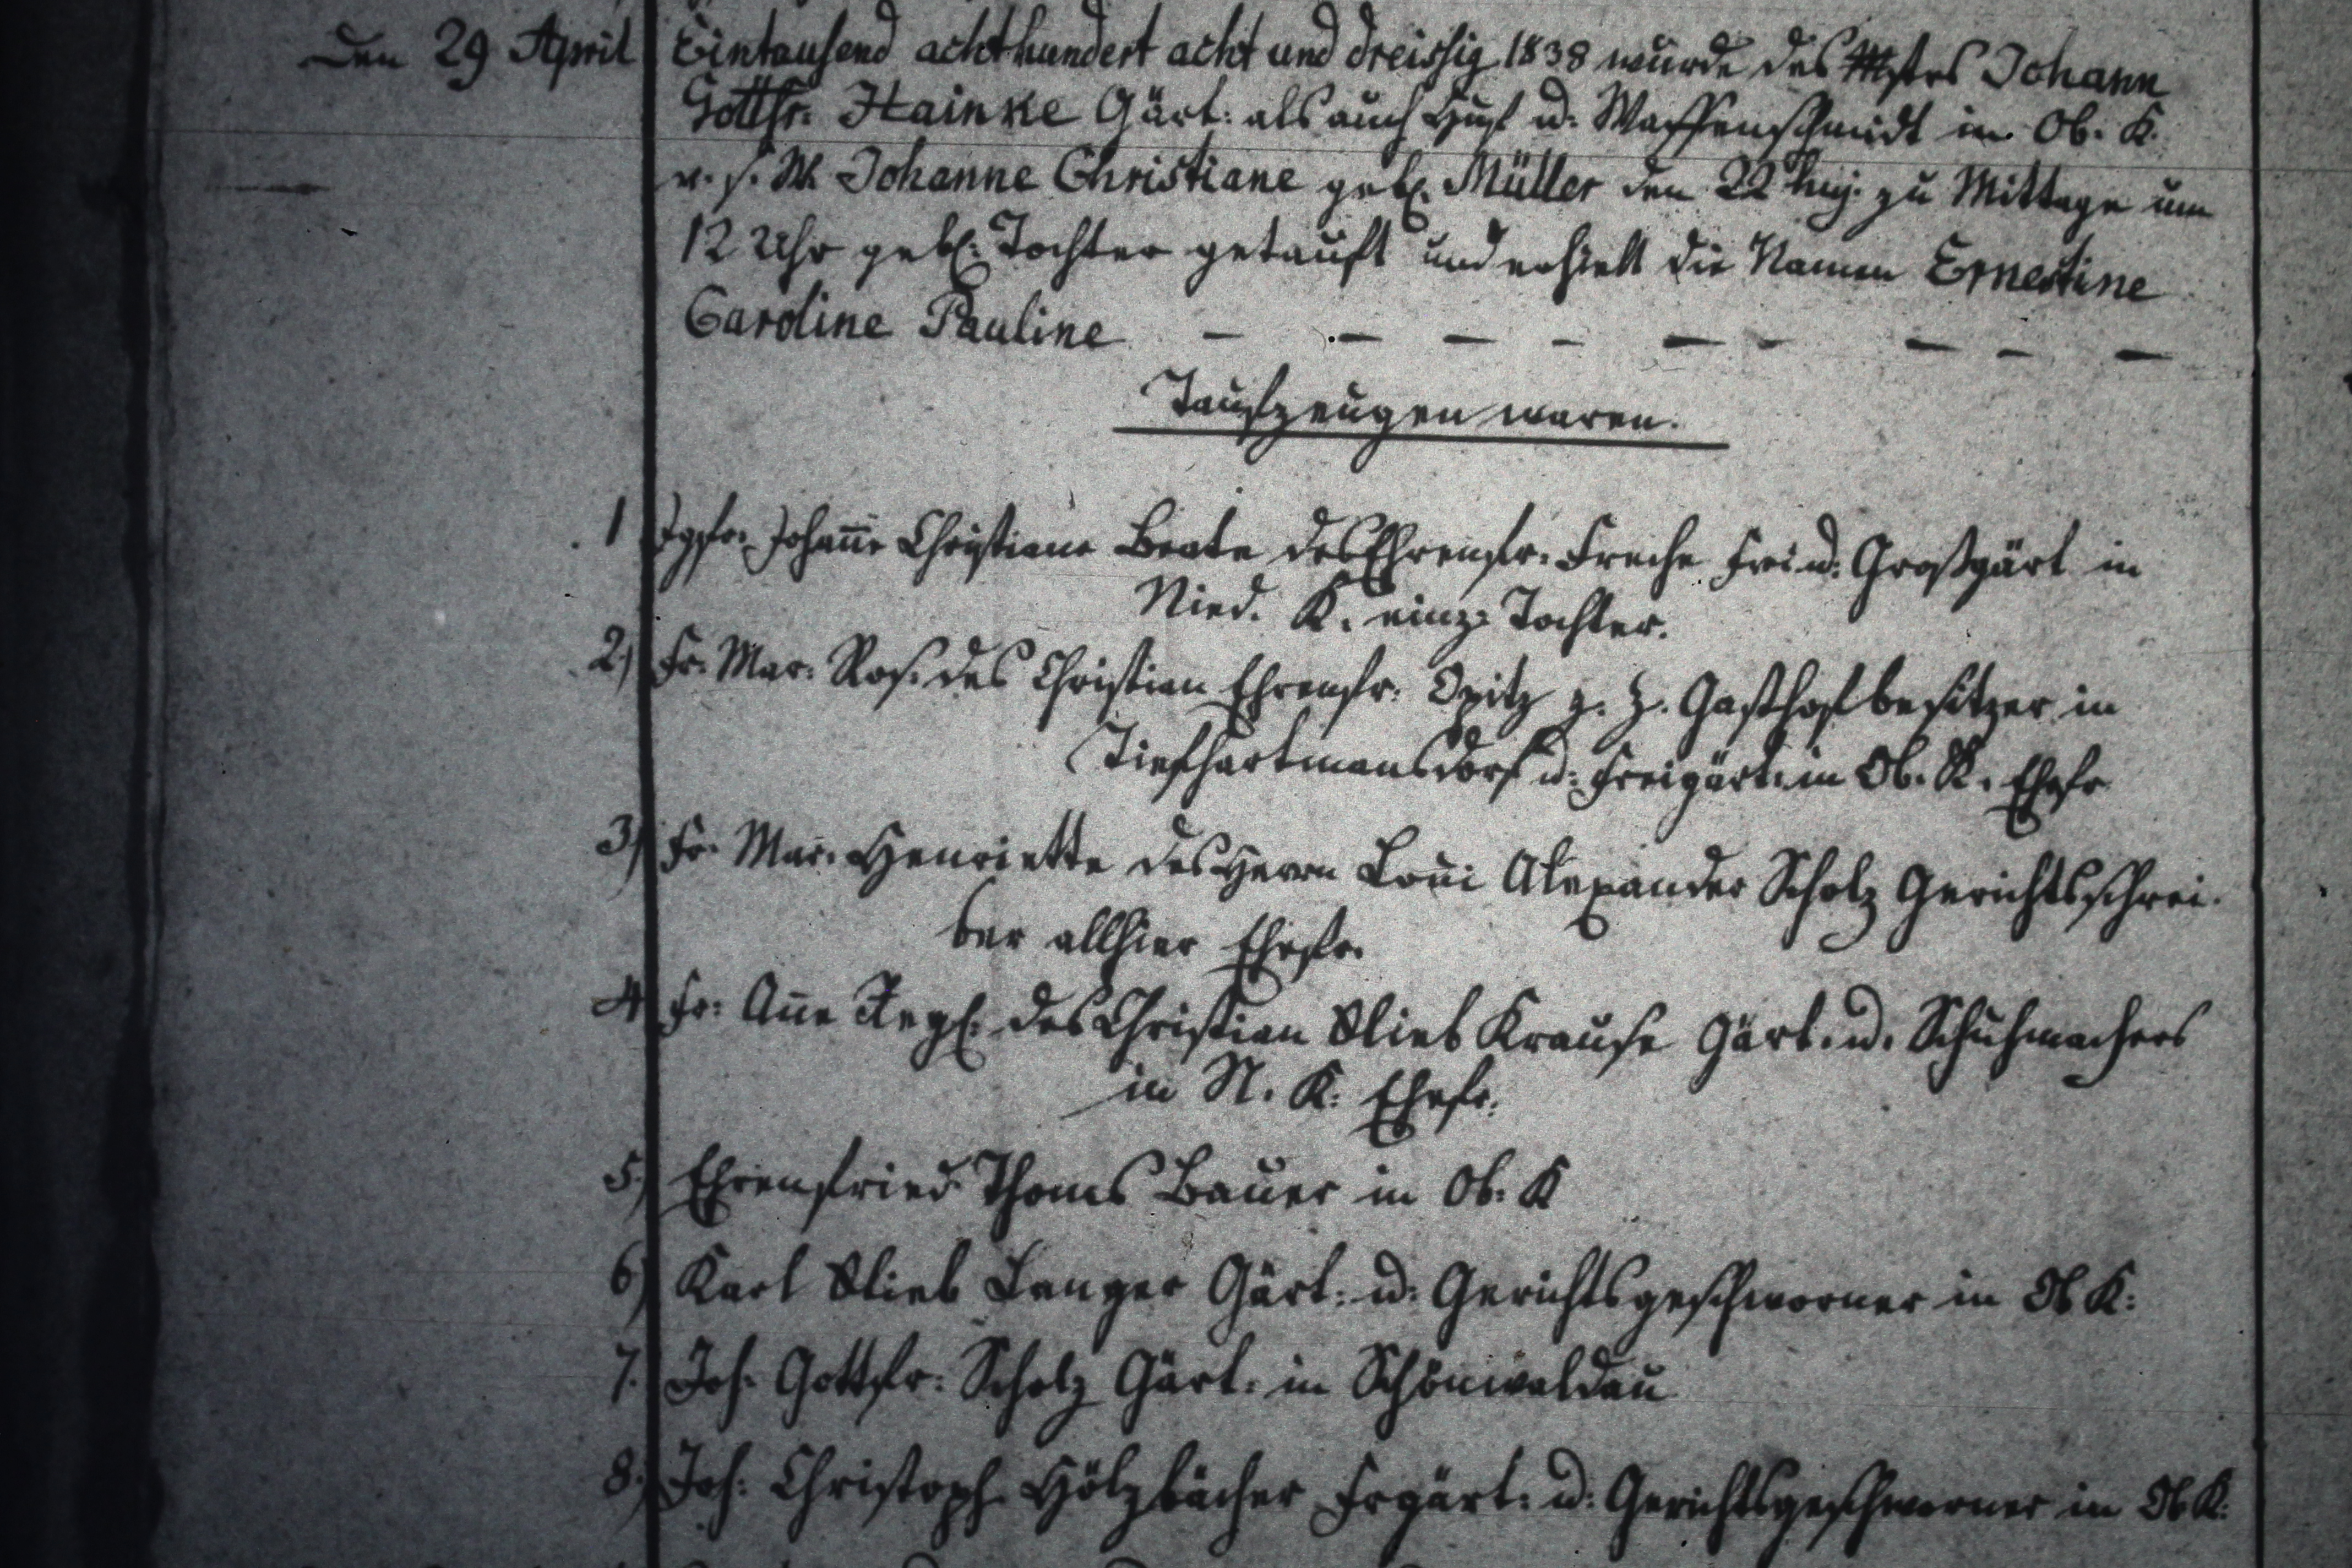 Den 29 April Eintausend achthundert acht und dreissig 1838 wurde des Mstrs Johann
Gottfr. Hainke Gärt: als auch Huf u. Waffenschmidt in Ob. K.
v. s. W. Johanne Christiane gebr. Müller den 22 huj. zu Mittage um
12 Uhr geb. Tochter getauft und erhielt die Namen Ernestine
Caroline Pauline — — — — — — — — —
Taufzeugen waren.
1 Jgfr. Johan̄e Christiane Beate des Ehrenfr. Freche Frei u. Großgärt in
Nied. K. einz. Tochter.
2) Fr. Mar. Ros. des Christian Ehrenfr. Opitz z. Z. Gasthofbesitzer in
Tiefhartmansdorf u. Freigärt. in Ob. K. Ehefr
3) Fr. Mar. Henriette des Herrn Alexander Scholz Gerichtsschrei-
ber allhier Ehefr.
4 Fr: An̄e des Christian Glieb Krause Gärt. u. Schuhmachers
in N. K. Ehefr.
5) Ehrenfried Thoms Bauer in Ob. K
6) Karl Glieb Langer Gärt: u: Gerichtsgeschworner in Ob K:
7. Joh. Gottfr: Scholz Gärt. in Schönwaldau
8. Joh: Christoph Hölzbächer Frgärt: u: Gerichtsgeschworner in Ob K.